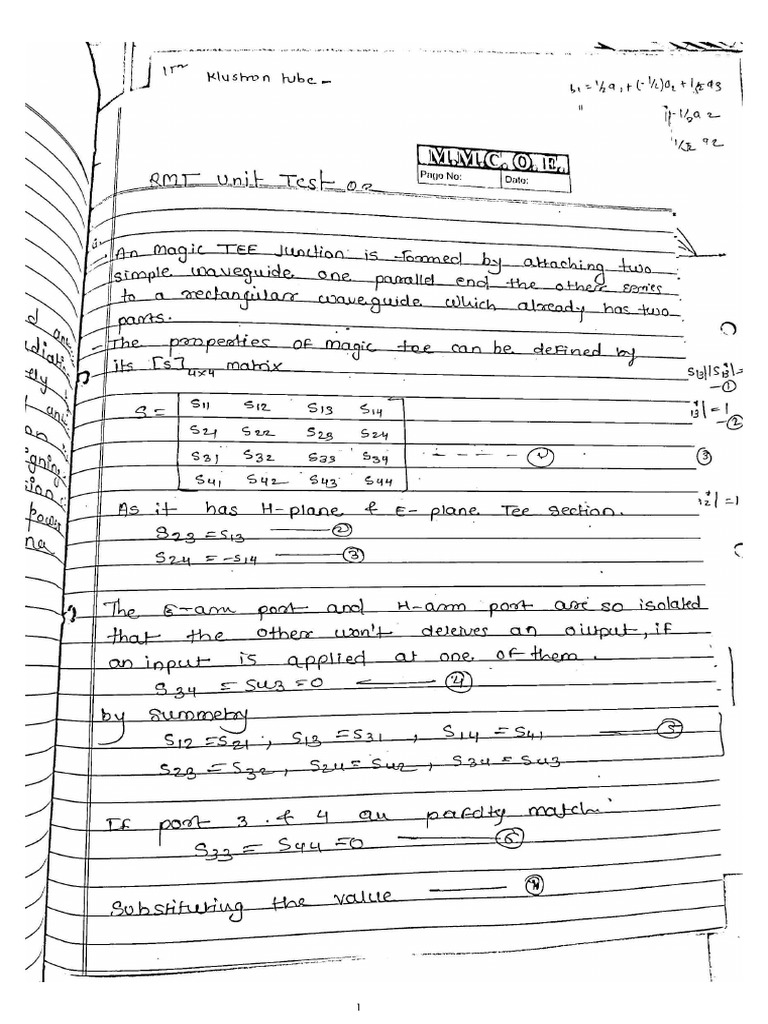 Klustron tube -
b1 = 1/2 a1 + (-1/2) a2 + 1/√2 a3
-1/2 a2
1/√2 a2
M.M.C.O.E.
Page No: Date:
RMT Unit Test 02
An magic TEE Junction is formed by attaching two
simple waveguide one parallel end the other series
to a rectangular waveguide which already has two
parts.
- The properties of magic tee can be defined by
its [S]4x4 matrix
S = S11 S12 S13 S14
S21 S22 S23 S24
S31 S32 S33 S34 - - - - - ①
S41 S42 S43 S44
As it has H-plane & E-plane Tee section.
S23 = S13 ——— ②
S24 = -S14 ——— ③
The E-arm port and H-arm port are so isolated
that the other won't deleives an oiutput, if
an input is applied at one of them.
S34 = S43 = 0 ——— ④
by summetry
S12 = S21 ; S13 = S31 , S14 = S41 ——— ⑤
S23 = S32 , S24 = S42 , S34 = S43
If port 3 & 4 au pafdty match.
S33 = S44 = 0 ——— ⑥
Substituting the value ———
1